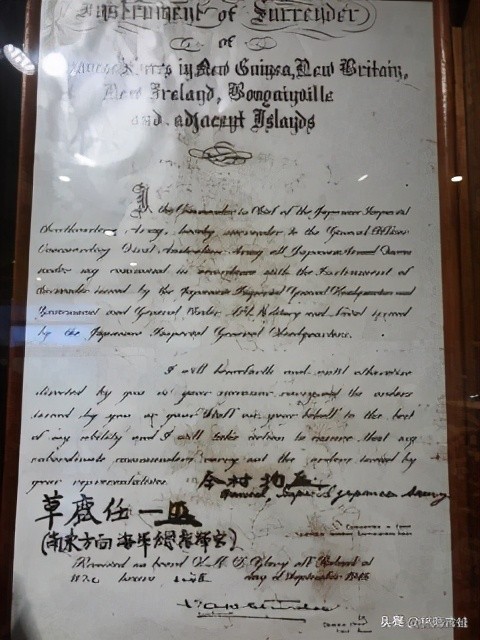 Instrument of Surrender
of
Japanese Forces in New Guinea, New Britain,
New Ireland, Bougainville
and adjacent Islands
I the Commander in Chief of the Japanese Imperial
Southeastern Army, hereby surrender to the General Officer
Commanding First Australian Army all Japanese Armed Forces
under my command in accordance with the Instrument of
Surrender issued by the Japanese Imperial General Headquarters and
Government and General Order No. 1 Military and Naval issued
by the Japanese Imperial General Headquarters.
I will henceforth and until otherwise
directed by you or your successor carry out the orders
issued by you or your Staff on your behalf to the best
of my ability and I will take action to ensure that my
subordinate commanders carry out the orders issued by
your representatives.
今村均
General, Imperial Japanese Army
草鹿任一
(南東方面海軍
Received on board H.M.S. Glory off Rabaul at
hours day of September 1945
头条